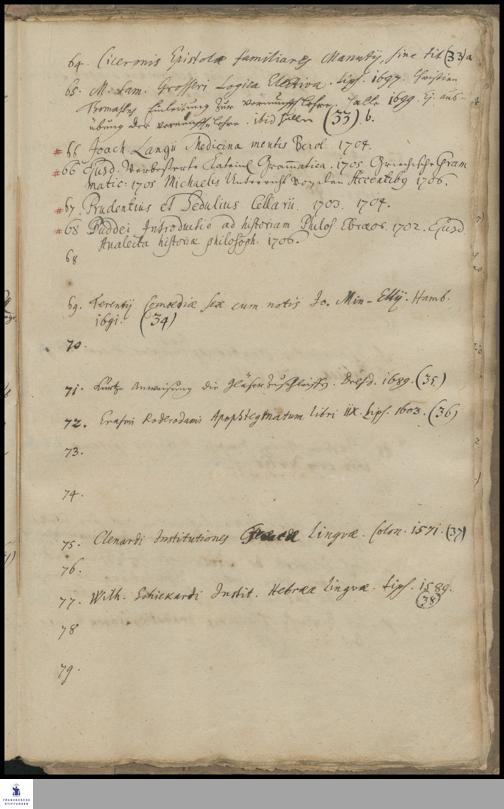 64. Ciceronis Epistolæ familiares Manutij, sine tit. (33)a
65. Mecham. Grosseri Logica Electiva. Lips. 1697. Christian
Thomasens Einleitung zur vernunfft-lehre. Halle 1699. Ej. aus-
übung der vernunfft-lehre. ibid. (33) b.
#66 Joach. Langii Medicina mentis Berol. 1704.
#66 Ejusd. Verbesserte Latein. Grammatica. 1705 Griechische Gram
matic. 1705 Michaelis Unterricht von den Accentibus 1706.
#67. Prudentius et Sedulius Cellarii. 1703. 1704.
#68 Buddei Introductio ad historiam Philos. Ebræor. 1702. Ejusd
Analecta historiæ philosoph. 1706.
68
69. Terentij Comœdiæ sex cum notis Jo. Min-Ellij. Hamb.
1691. (34)
70.
71. Kurtze Anweisung die Gläser Dresd. 1689. (35)
72. Erasmi Roterodami Apophtegmatum libri IIX. Lips. 1603. (36)
73.
74.
75. Clenardi Institutiones Græcæ Linguæ. Colon. 1571. (37)
76.
77. Wilh. Schickardi Instit. Hebrææ Linguæ. Lips. 1689.
(38)
78
79.
FRANCKESCHE
STIFTUNGEN